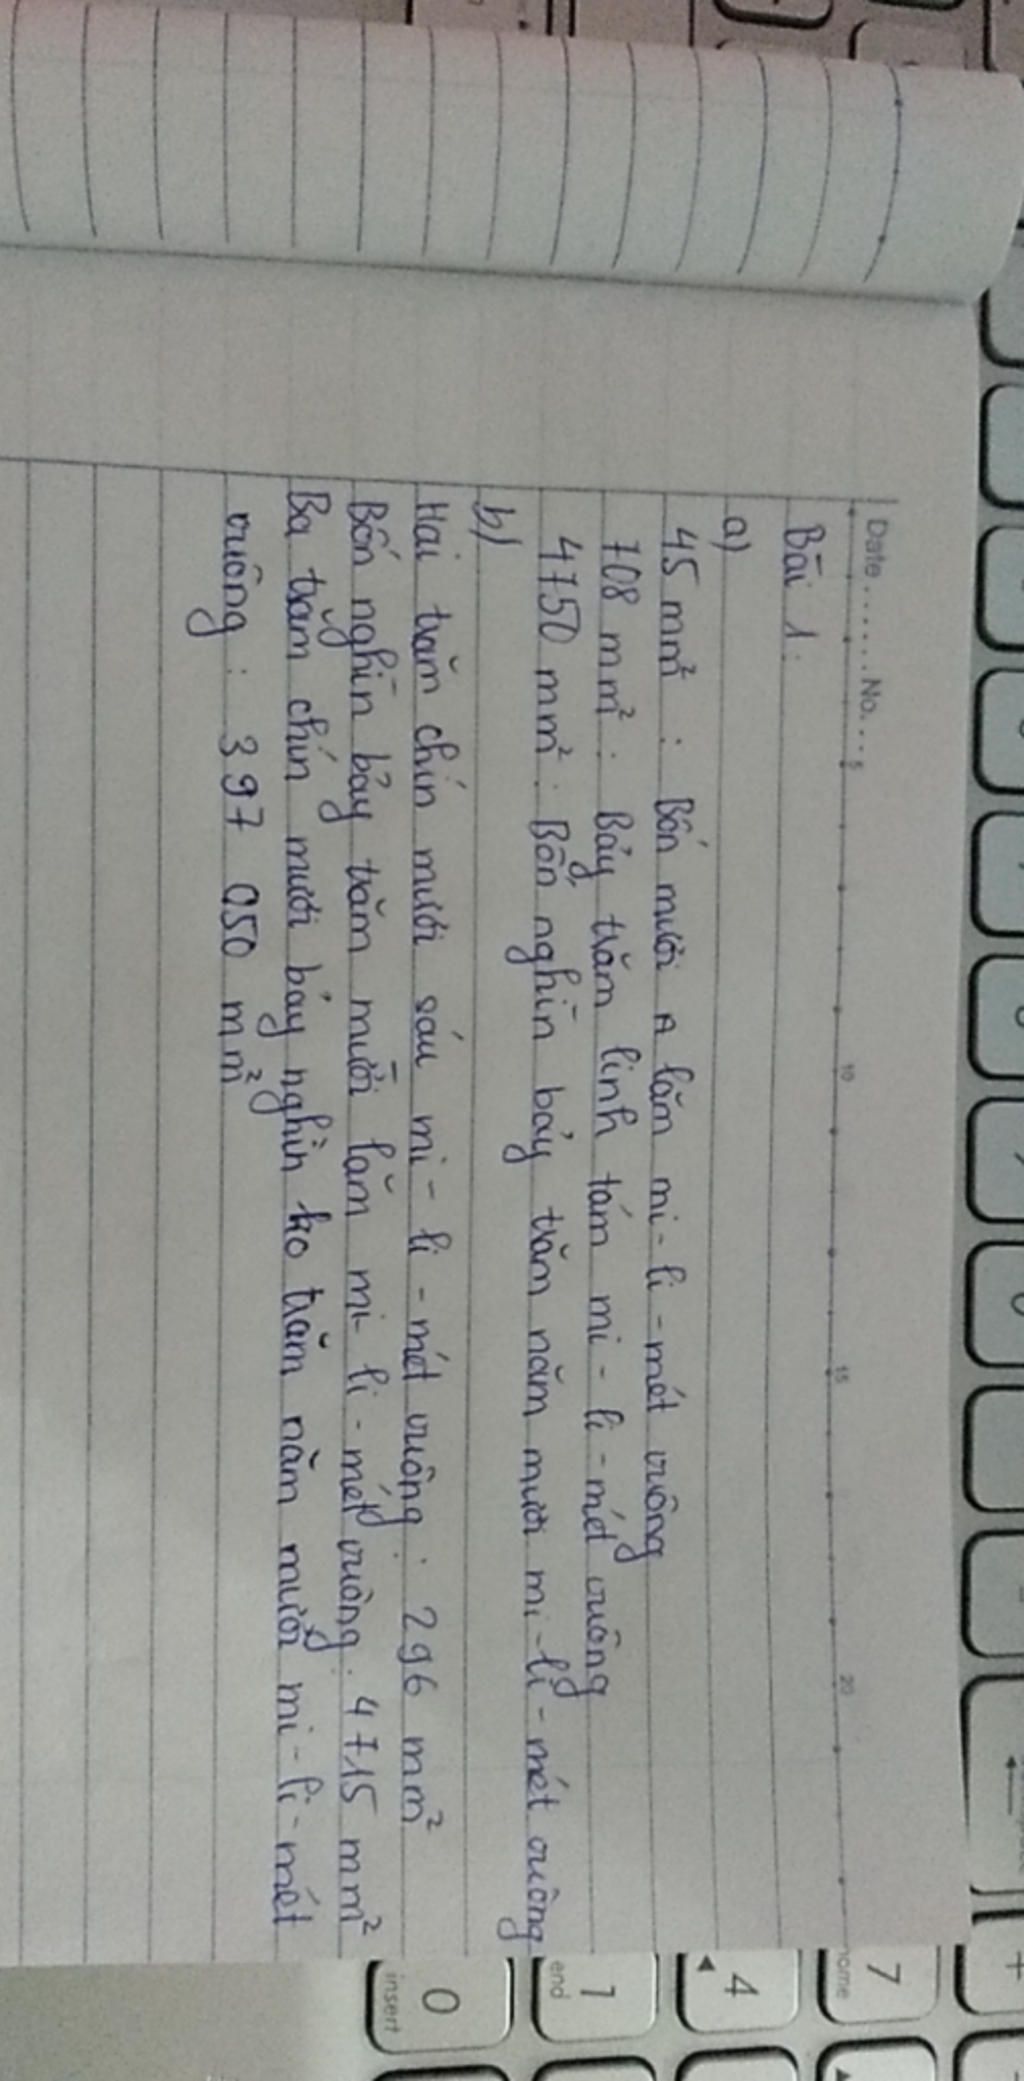 Date...... No....
5 10 15 20
Bài 1:
a)
45 mm² : Bốn mươi lăm mi-li-mét vuông
708 mm² : Bảy trăm linh tám mi-li-mét vuông
4750 mm² : Bốn nghìn bảy trăm năm mươi mi-li-mét vuông
b)
Hai trăm chín mươi sáu mi-li-mét vuông : 296 mm²
Bốn nghìn bảy trăm mười lăm mi-li-mét vuông : 4715 mm²
Ba trăm chín mươi bảy nghìn ko trăm năm mươi mi-li-mét
vuông : 397 050 mm²
7
4
1
end
0
insert
+